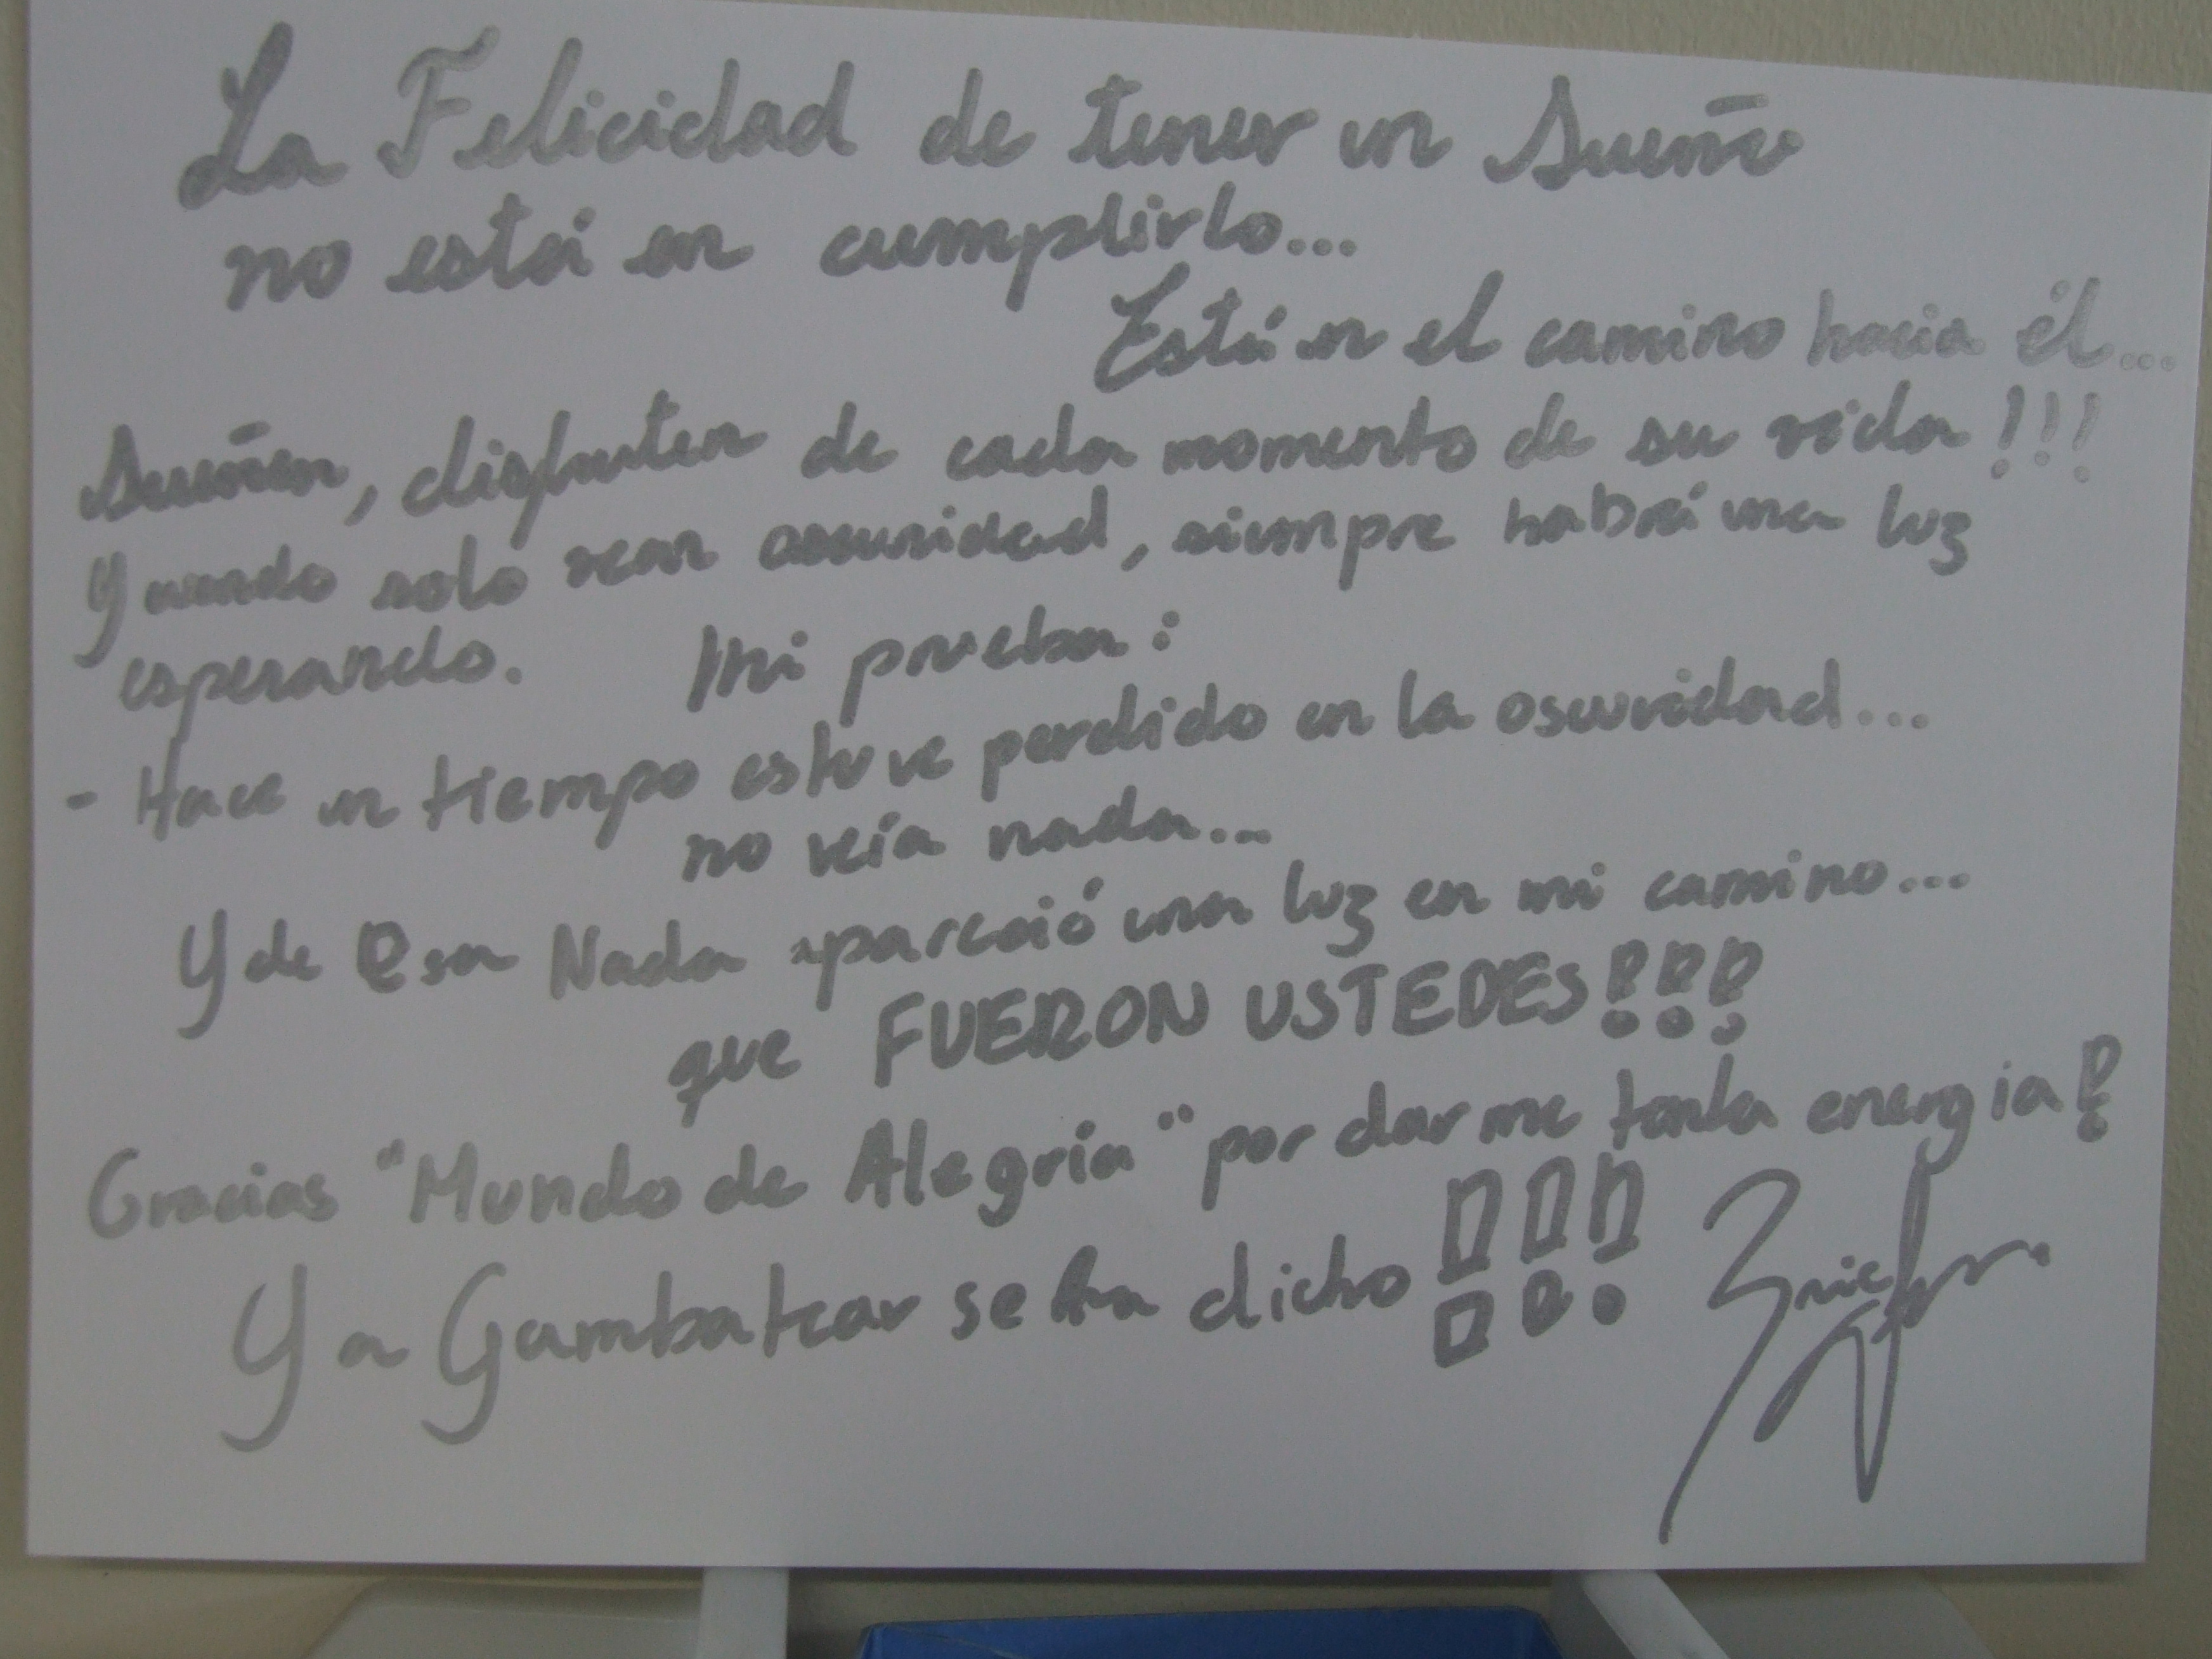 La Felicidad de tener un Sueño
no está en cumplirlo...
Está en el camino hacia él...
Sueñen, disfruten de cada momento de su vida!!!
Y cuando solo vean oscuridad, siempre habrá una luz
esperando. Mi prueba:
- Hace un tiempo estuve perdido en la oscuridad...
no veía nada...
Y de Esa Nada apareció una luz en mi camino...
que FUERON USTEDES!!!
Gracias "Mundo de Alegría" por darme tanta energia!
Y a Gambatear se ha dicho!!!